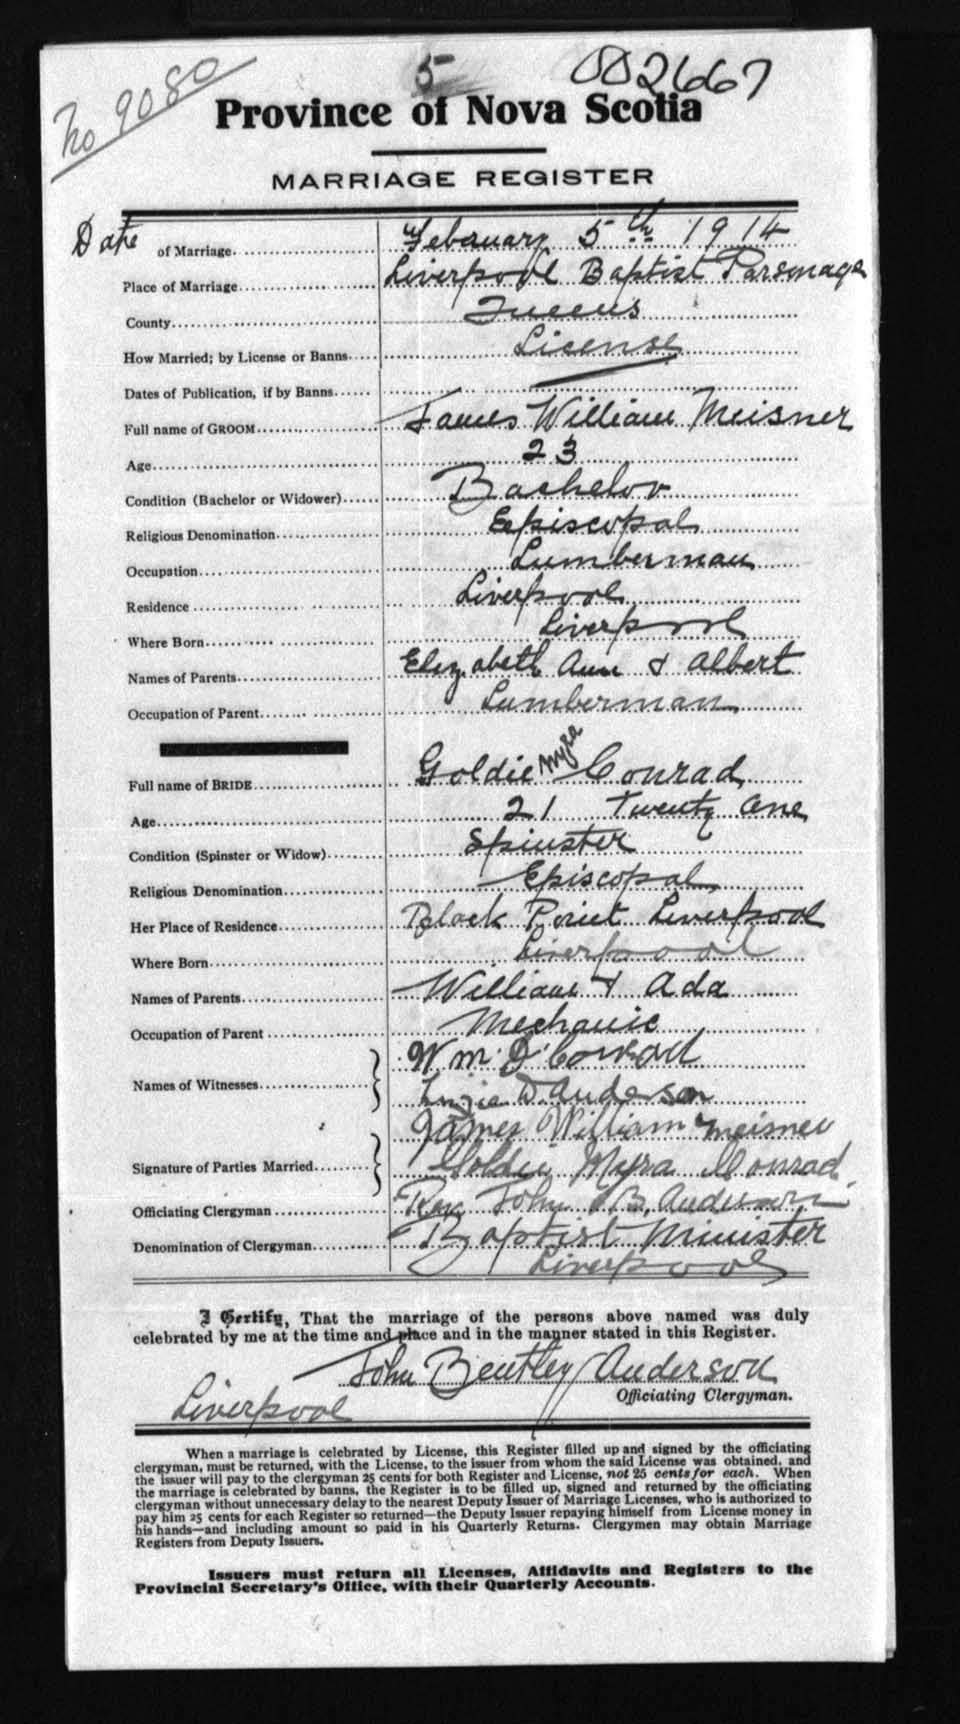 No 9080
5
002667
Province of Nova Scotia
MARRIAGE REGISTER
Date of Marriage February 5th 1914
Place of Marriage Liverpool Baptist Parsonage
County Queens
How Married; by License or Banns License
Dates of Publication, if by Banns
Full name of GROOM James William Meisner
Age 23
Condition (Bachelor or Widower) Bachelor
Religious Denomination Episcopal
Occupation Lumberman
Residence Liverpool
Where Born Liverpool
Names of Parents Elizabeth Ann & Albert
Occupation of Parent Lumberman
Full name of BRIDE Goldie Myra Conrad
Age 21 Twenty One
Condition (Spinster or Widow) Spinster
Religious Denomination Episcopal
Her Place of Residence Black Point Liverpool
Where Born Liverpool
Names of Parents William & Ada
Occupation of Parent Mechanic
Names of Witnesses Wm D Conrad
Lizzie D. Anderson
Signature of Parties Married James William Meisner
Goldie Myra Conrad
Officiating Clergyman Rev John B. Anderson
Denomination of Clergyman Baptist Minister
Liverpool
I Certify, That the marriage of the persons above named was duly
celebrated by me at the time and place and in the manner stated in this Register.
John Bentley Anderson
Officiating Clergyman.
Liverpool
When a marriage is celebrated by License, this Register filled up and signed by the officiating
clergyman, must be returned, with the License, to the issuer from whom the said License was obtained, and
the issuer will pay to the clergyman 25 cents for both Register and License, not 25 cents for each. When
the marriage is celebrated by banns, the Register is to be filled up, signed and returned by the officiating
clergyman without unnecessary delay to the nearest Deputy Issuer of Marriage Licenses, who is authorized to
pay him 25 cents for each Register so returned—the Deputy Issuer repaying himself from License money in
his hands—and including amount so paid in his Quarterly Returns. Clergymen may obtain Marriage
Registers from Deputy Issuers.
Issuers must return all Licenses, Affidavits and Registers to the
Provincial Secretary's Office, with their Quarterly Accounts.